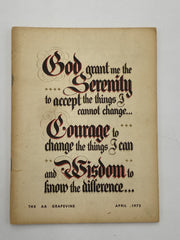 God grant me the
Serenity
to accept the things I
cannot change...
Courage to
change the things I can
and Wisdom to
know the difference...
THE AA GRAPEVINE
APRIL 1973